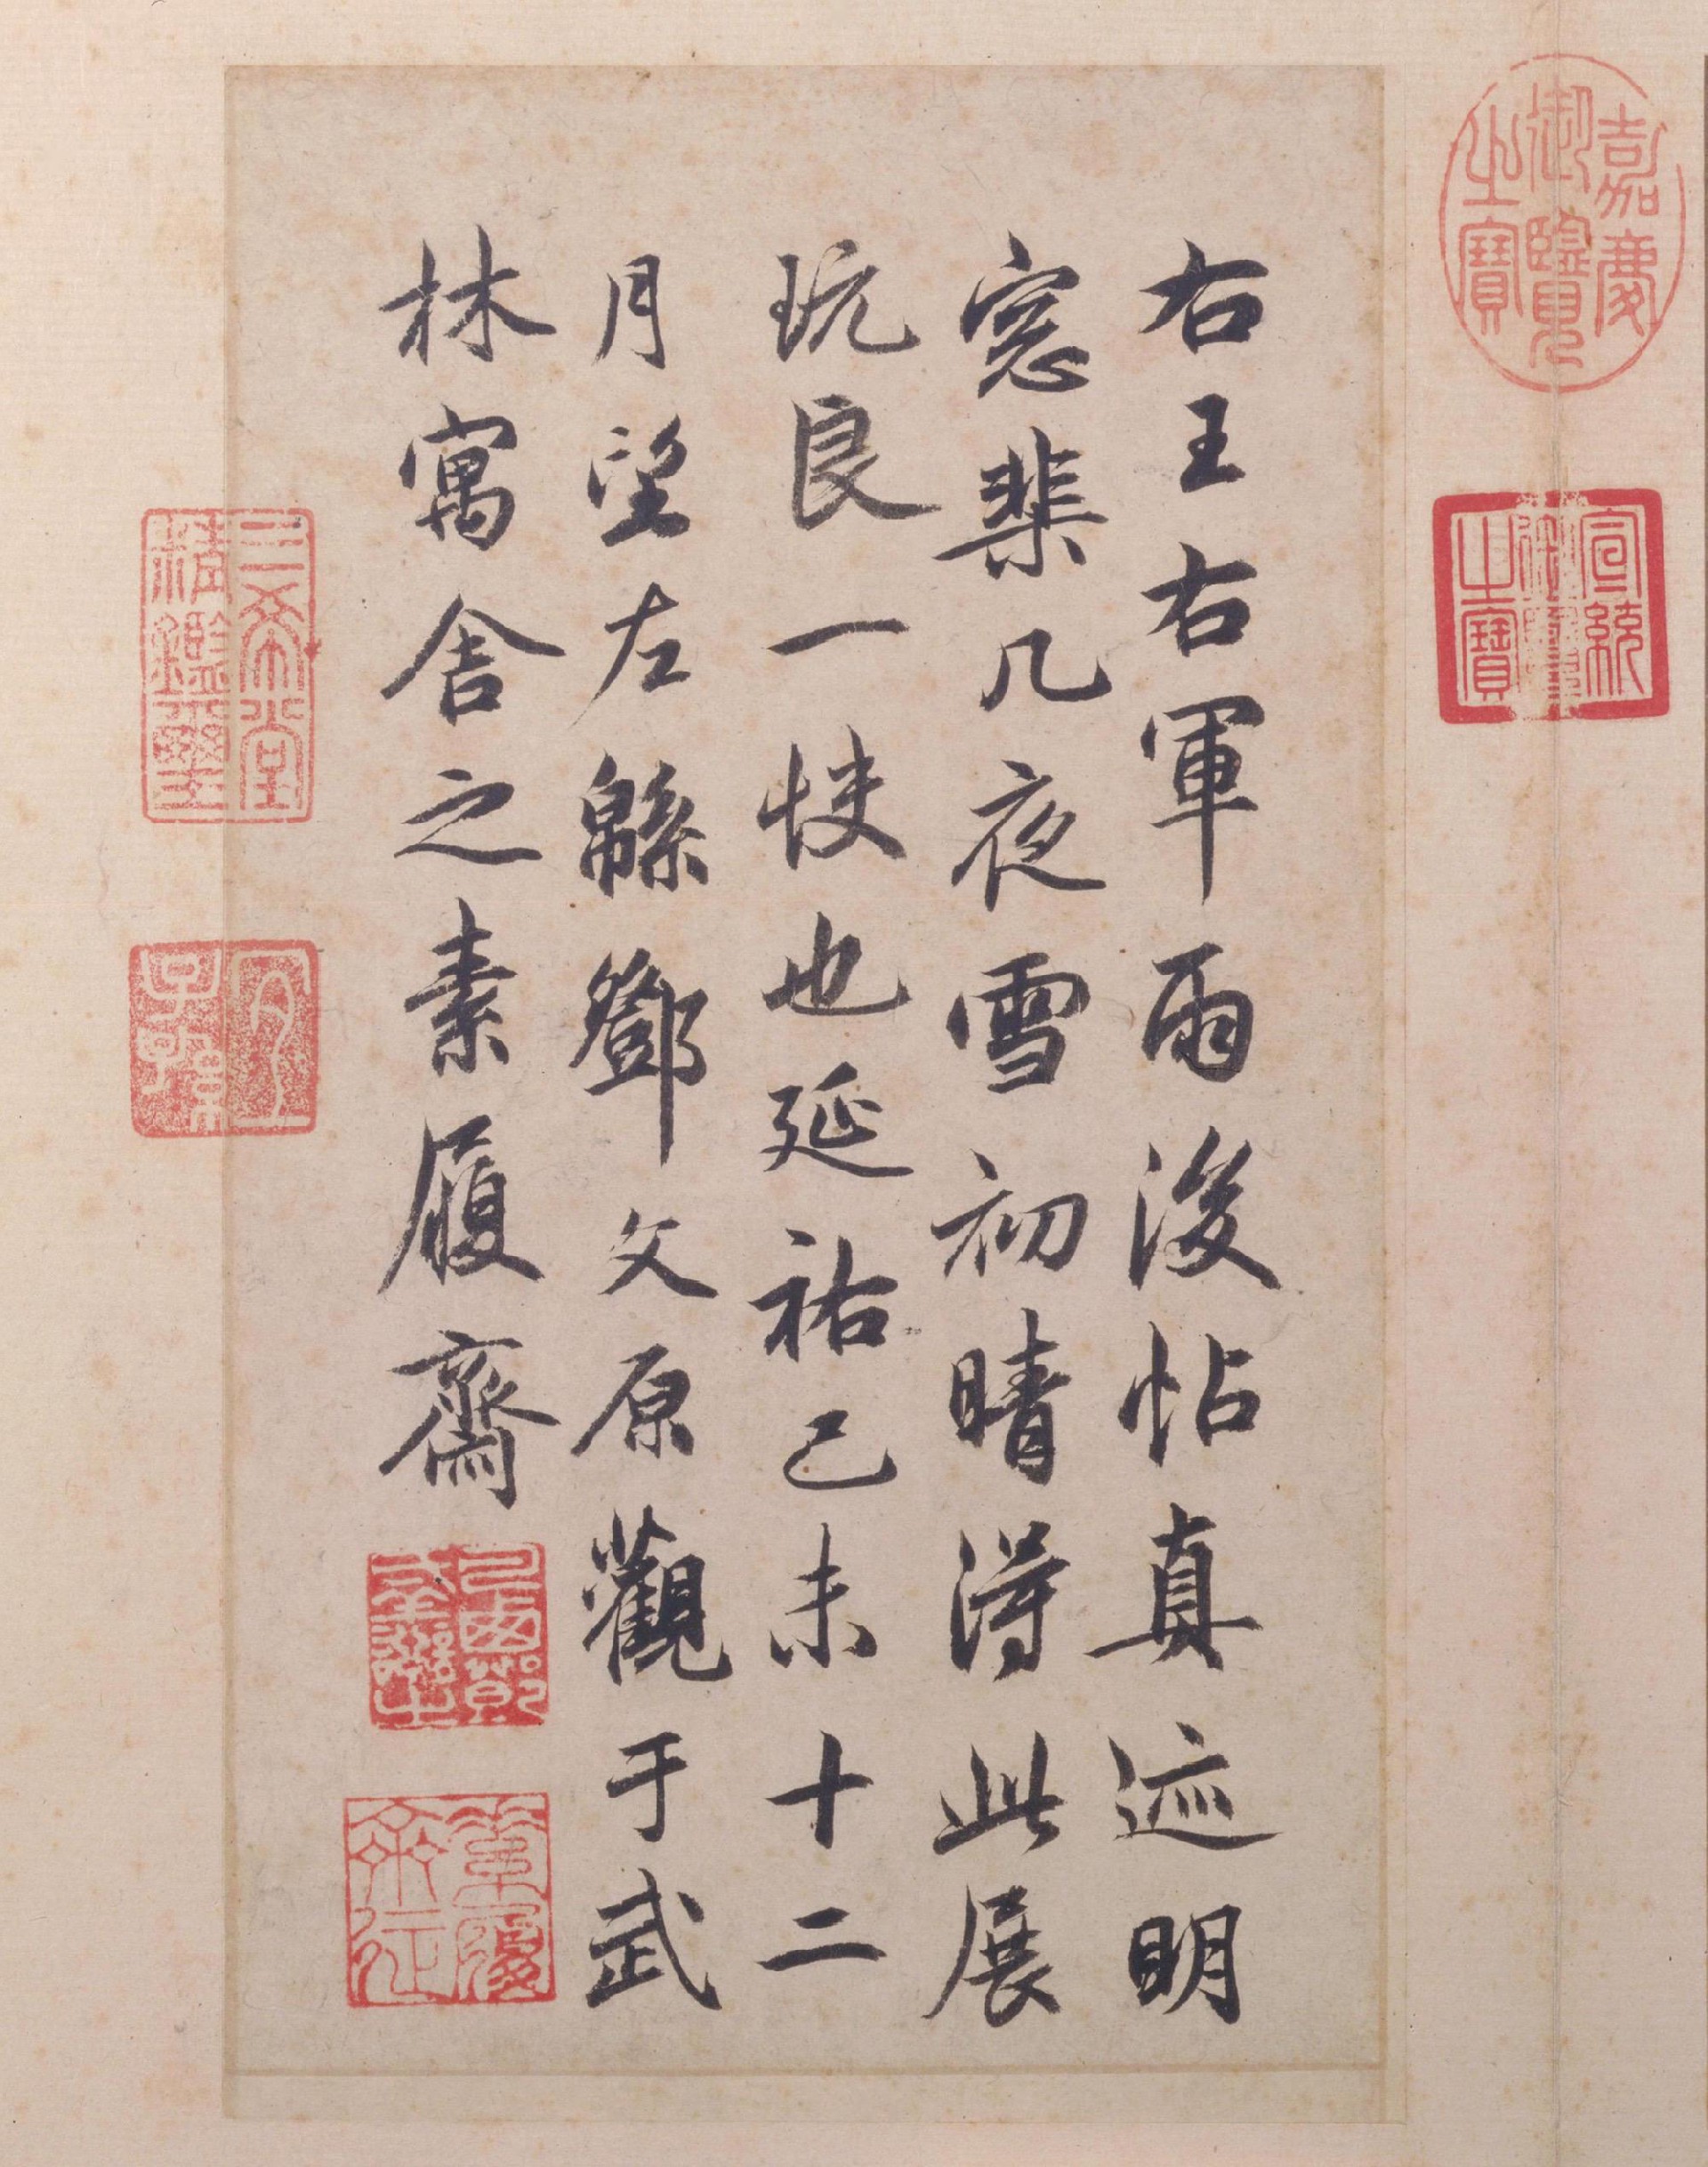 嘉慶御覽之寶
宣統御覽之寶
右王右軍雨後帖真迹明
窓棐几夜雪初晴得此展
玩良一快也延祐己未十二
月望左緜鄧文原觀于武
林寓舍之素履齋
三希堂精鑑璽
宜子孫